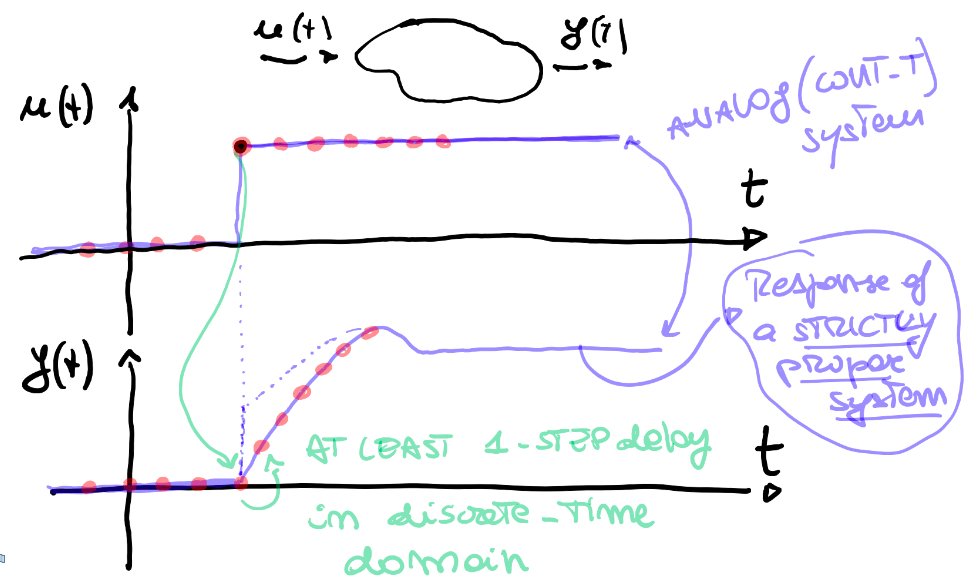 u(t)
y(t)
u(t)
ANALOG (CONT-T)
system
t
Response of
a STRICTLY
proper
system
y(t)
AT LEAST 1-STEP delay
t
in discrete-Time
domain